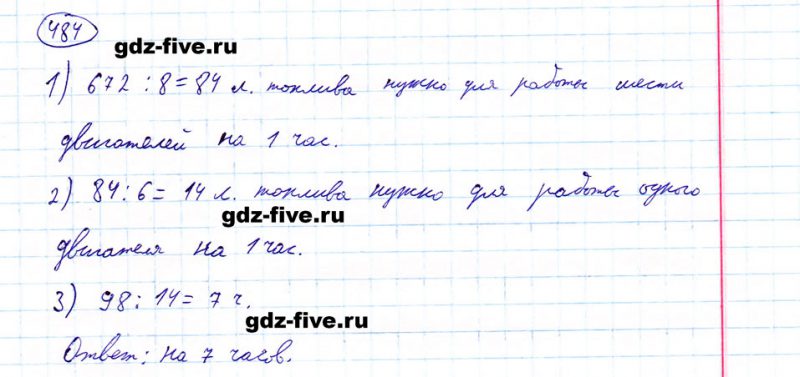 484
gdz-five.ru
1) 672 : 8 = 84 л. топлива нужно для работы шести
двигателей на 1 час.
2) 84 : 6 = 14 л. топлива нужно для работы одного
gdz-five.ru
двигателя на 1 час.
3) 98 : 14 = 7 ч.
gdz-five.ru
Ответ: на 7 часов.